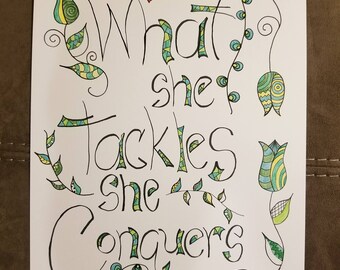 What
she
Tackles
she
Conquers